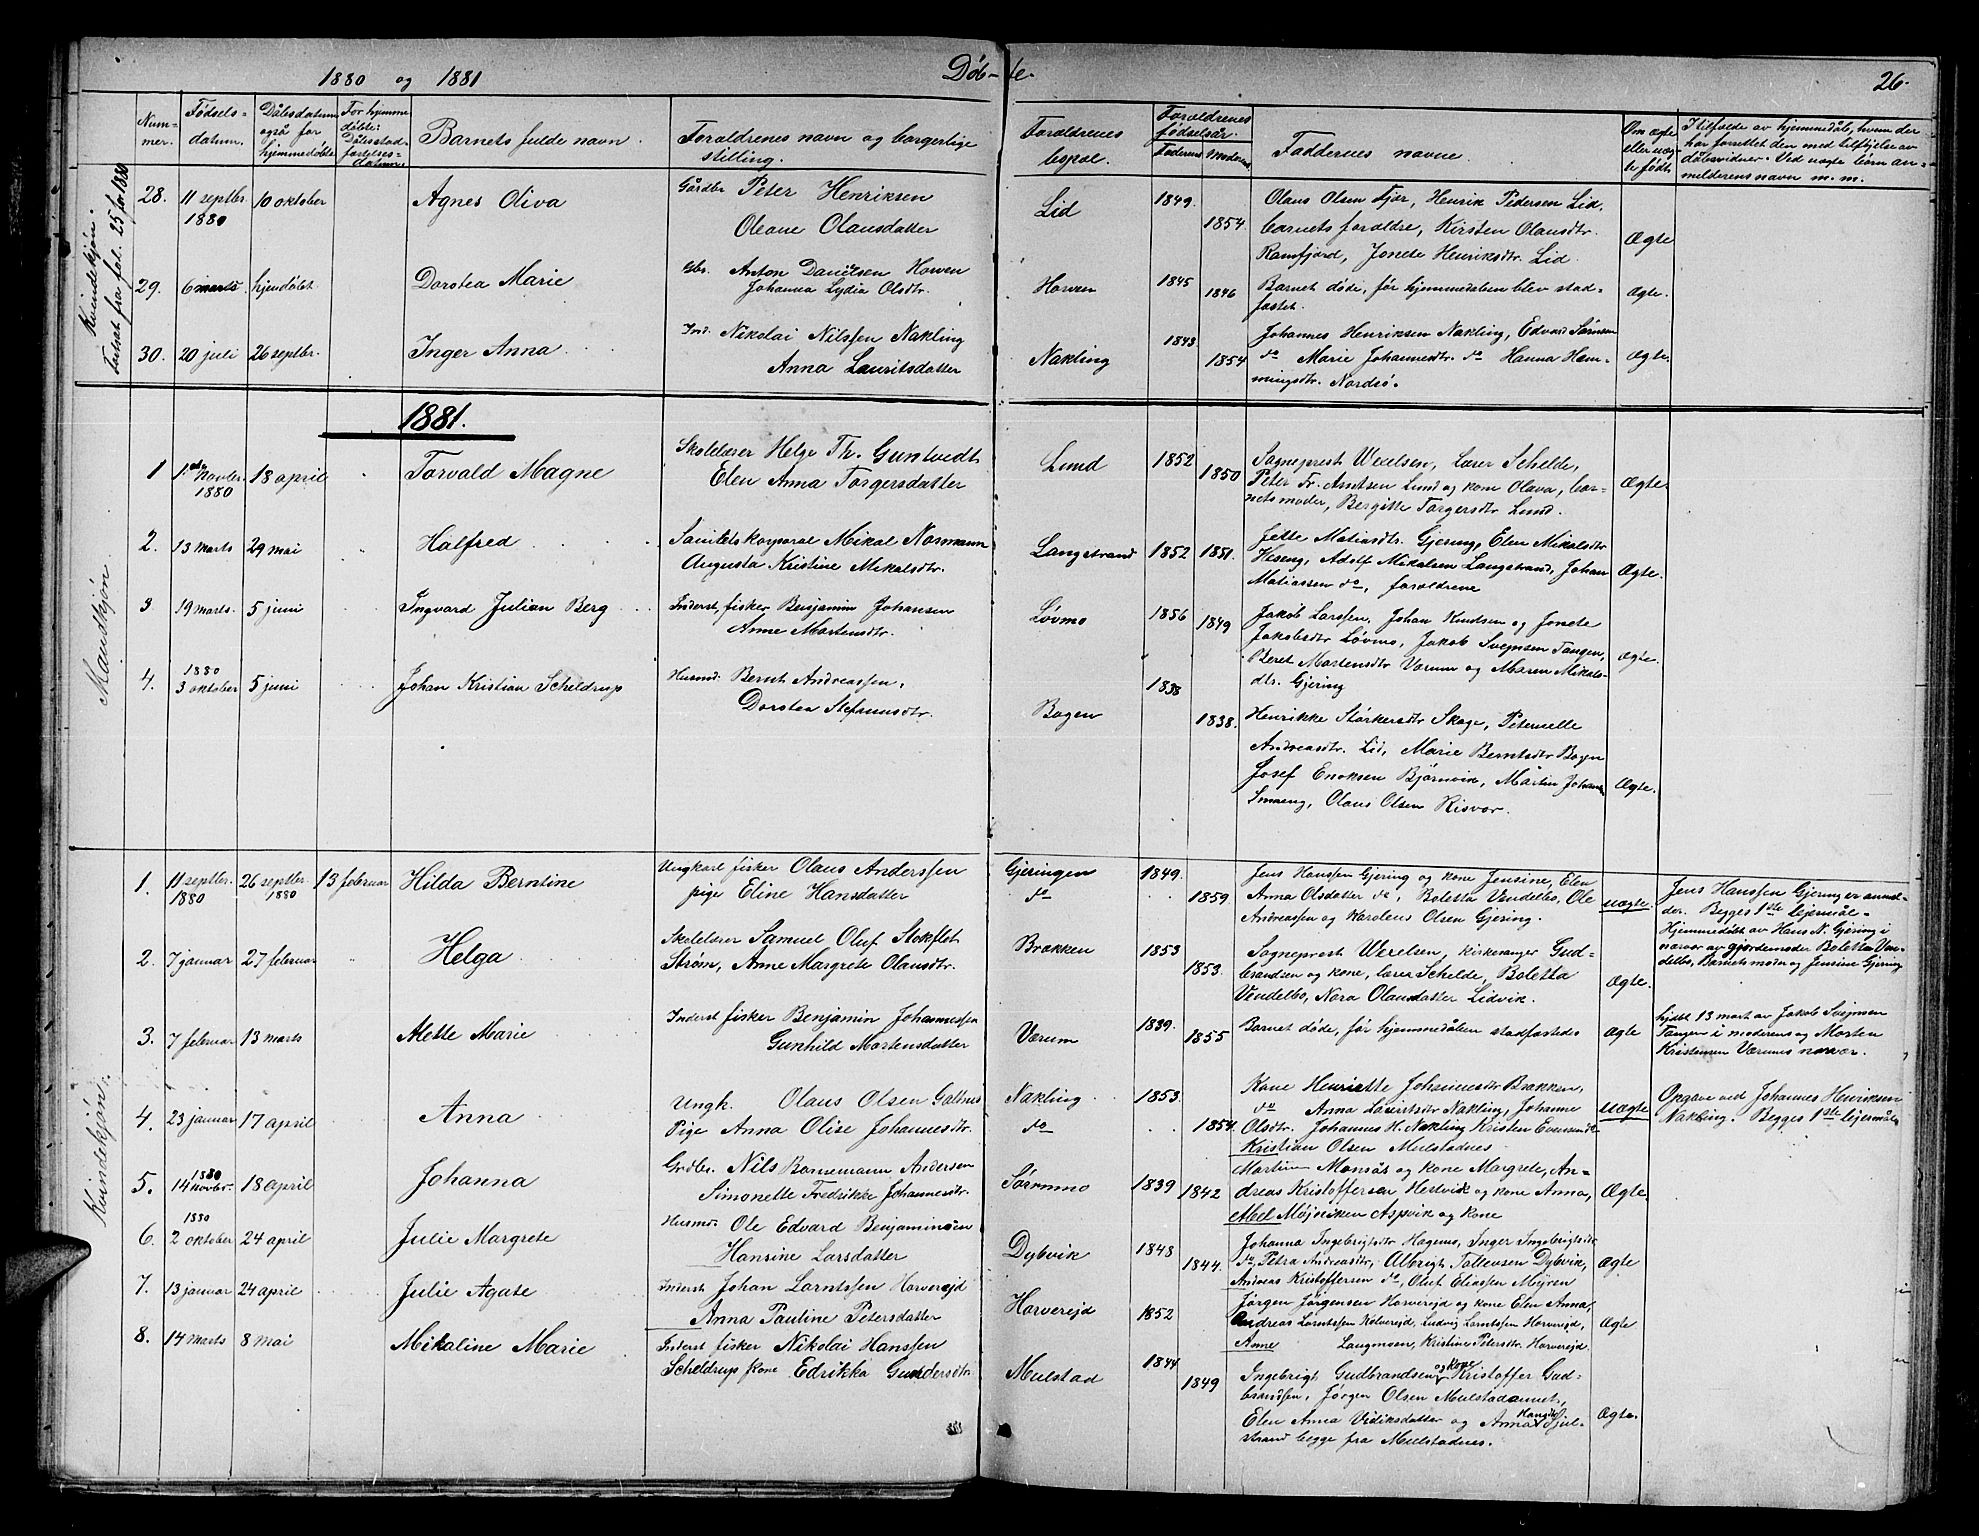 1880 og 1881
Døb-te.
26.
Num-
mer.
Fødsels-
datum.
Dåbsdatum
også for
hjemmedøbte
For hjemme
døbte:
Dåbsstad-
fæstelses-
datum.
Barnets fulde navn.
Forældrenes navn og borgerlige
stilling.
Forældrenes
bopæl.
Forældrenes
fødselsår.
Faderens
Moderens
Faddernes navne.
Om ægte
eller uæg-
te født.
I tilfælde av hjemmedåb, hvem der
har forrettet den med tilføielse av
dåbsvidner. Ved uægte børn an-
melderens navn m. m.
Kvindekjøn.
Fortsat fra fol. 25 for 1880
28. 11 septbr. 1880 10 oktober Agnes Oliva Gårdbr Peter Henriksen
Oleane Olausdatter
Lid 1849. 1854.
Olaus Olsen Fjær, Henrik Pedersen Lid,
barnets forældre, Kirsten Olausdtr.
Ramfjord, Jonete Henriksdtr. Lid.
Ægte
29. 6 marts. hjemdøbt Dortea Marie Gbr. Anton Danielsen Horven
Johanna Lydia Olsdtr.
Horven 1845 1846
Barnet døde, før hjemmedåben blev stad-
fæstet.
Ægte.
30. 20 juli 26 septbr. Inger Anna Ind. Nikolai Nilssen Nakling
Anna Lauritsdatter
Nakling 1843 1854
Johannes Henriksen Nakling, Edvard Sørensen
do Marie Johannesdtr. do Hanna Hem-
mingsdtr. Nordsø.
Ægte.
1881.
Mandkjøn
1 1. novbr. 1880 18 april Torvald Magne Skolelærer Helge Th. Guntvedt
Elen Anna Torgersdatter
Lund 1852 1850
Sogneprest Wexelsen, Lærer Schelde,
Peter Fr. Arntsen Lund og kone Olava, bar-
nets moder, Bergitte Torgersdtr Lund.
Ægte.
2. 13 marts 29 mai Halfred Sanitetskorporal Mikal Normann
Augusta Kristine Mikalsdtr.
Langstrand 1852 1851.
Jette Matiasdtr. Gjering, Elen Mikalsdtr
Heseng, Adolf Mikalsen Langstrand, Johan
Matiassen do, forældrene
Ægte.
3 19 marts. 5 juni Ingvard Julian Berg Inderst, fisker Benjamin Johansen
Anne Mortensdtr.
Løvmo 1856 1849
Jakob Larssen, Johan Knudsen og Jonete
Jakobsdtr Løvmo, Jakob Svejnsen Tangen,
Beret Mortensdtr Værum og Maren Mikals-
dtr. Gjering
Ægte.
4. 1880 3 oktober 5 juni Johan Kristian Scheldrup Husmd. Bernt Andreassen,
Dortea Stefanusdtr.
Bogen 1838 1838.
Henrikke Størkersdtr Skage, Peternelle
Andreasdtr. Lid, Marie Berntsdtr Bogn
Josef Enoksen Bjørnvik, Mårtin Johans
Smaeng, Olaus Olsen Risvær.
Ægte.
Kvindekjøn.
1. 11 septbr. 1880 26 septbr. 1880 13 februar Hilda Berntine Ungkarl fisker Olaus Anderssen
pige Eline Hansdatter
Gjeringen
do
1849. 1859.
Jens Hanssen Gjering og kone Jensine, Elen
Anna Olsdatter do, Boletta Vendelbo, Ole
Andreassen og Karolius Olsen Gjering.
uægte.
Jens Hanssen Gjering er anmel-
der. Begges 1ste lejermål-
Hjemmedøbt av Hans N. Gjering i
nærvær av gjordemoder Boletta Ven-
delbo, Barnets moder og Jensine Gjering
2. 7 januar 27 februar Helga Skolelærer Samuel Oluf Stokflet
Strøm, Anne Margrete Olausdtr.
Brakken 1853 1853.
Sogneprest Wexelsen, kirkesanger Gud-
brandsen og kone, lærer Schelde, Boletta
Vendelbo, Nora Olausdatter Lidvik.
Ægte.
3. 7 februar 13 marts Mette Marie Inderst fisker Benjamin Johannessen
Gunhild Mortensdatter
Værum 1839. 1855
Barnet døde, før hjemmedåben stadfæstedes
Ægte
hjdbt 13 mart av Jakob Svejnsen
Tangen i moderens og Morten
Kristensen Værums nærvær.
4. 23 januar 17 april Anna Ungk. Olaus Olsen Galtnes
Pige Anna Olise Johannesdtr.
Nakling
do
1853. 1854.
Kone Henriette Johannesdtr Brakken,
do Anna Lauritsdtr Nakling, Johanne
Olsdtr. Johannes H. Nakling Kristen Evensen
Kristian Olsen Mulstadnes
uægte
Opgave ved Johannes Henriksen
Nakling. Begges 1ste lejermål
5. 1880 14 novbr. 18 april Johanna Grdbr. Nils Bornemann Andersen
Simonette Fredrikke Johannesdtr.
Sørnmo 1839 1842
Martin Monsås og kone Margrete, An-
dreas Kristoffersen Hestvik og kone Anna,
Mel Møjniken Aspvik og kone
Ægte
6. 1880 2 oktober 24 april Julie Margrete Husmd. Ole Edvard Benjaminsen
Hansine Larsdatter
Dybvik 1848 1844.
Johanna Ingebrigtsdtr Hagemo, Inger Ingebrigtsdtr
do, Petra Andreasdtr, Albregt Tollevsen Dybvik,
Andreas Kristoffersen do, Oluf Eliassen Mojren
Ægte
7. 13 januar 24 april Julie Agate Inderst Johan Larntssen Horverejd
Anna Pauline Petersdatter
Horverejd 1852
Jørgen Jørgensen Horverejd og kone Elen Anna,
Andreas Larntssen Kolverejd, Ludvig Larntssen Horverejd,
Anne Langmoen, Kristine Petersdtr. Horverejd
Ægte
8. 14 marts 8 mai Mikaline Marie Inderst fisker Nikolai Hanssen
Scheldrup kone Edrikka Gundersdtr.
Mulstad 1844 1849
Ingebrigt Gudbrandsen og kone Kristoffer Gud-
brandsen, Jørgen Olsen Mulstadannet,
Elen Anna Vidiksdatter og Anna Hansdtr Sjul-
strand begge fra Mulstadnes.
Ægte.